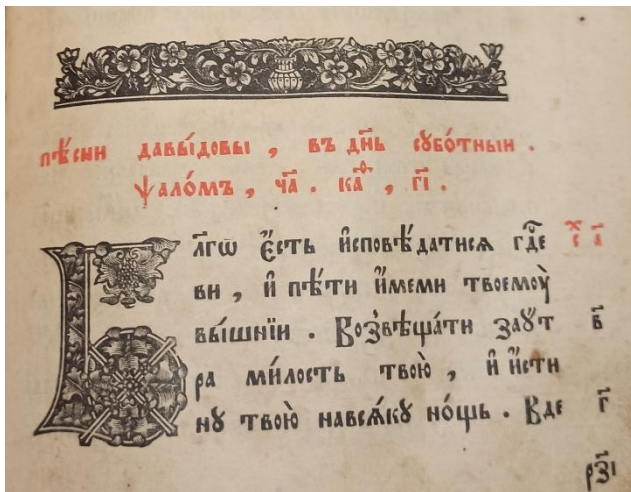 пѣ́сни давы́довы , въ дн҃ь сꙋбо́тныи .
ѱало́мъ , ч҃а . каⷴ҇ , г҃і .
Бл҃гѡ є҆́сть и҆сповѣ́датися гдⷭ҇е х҃с а҃
ви , и҆ пѣ́ти и҆́мени твоемоу̀
вы́шнїи . Возвѣща́ти заꙋт в҃
ра ми́лость твою̀ , и҆ и҆́сти
нꙋ твою̀ нався́кꙋ но́щь . Вде г҃
рз҃і